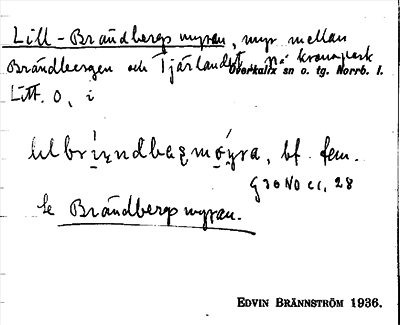 Lill-Brändbergsmyran, myr mellan
Brändbergen och Tjärlandet på kronopark
Överkalix sn o. tg. Norrb. l.
Litt. O, i
bf. fem.
28
Se Brändbergsmyran.
EDVIN BRÄNNSTRÖM 1936.